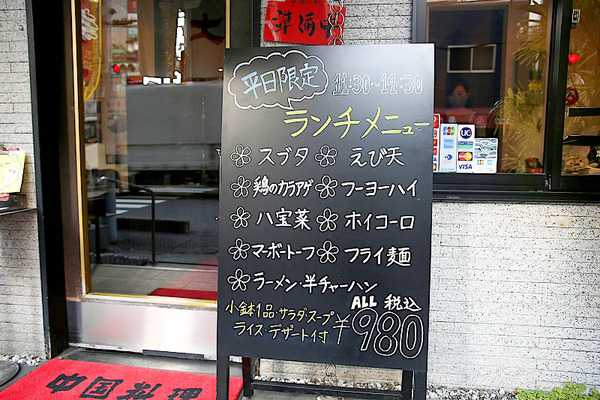 準備中
平日限定 11:30~14:30
ランチメニュー
スブタ えび天
鶏のカラアゲ フーヨーハイ
八宝菜 ホイコーロ
マーボートーフ フライ麺
ラーメン・半チャーハン
小鉢1品・サラダスープ
ライス・デザート付
ALL 税込
¥980
JCB
UC
VISA
中国料理